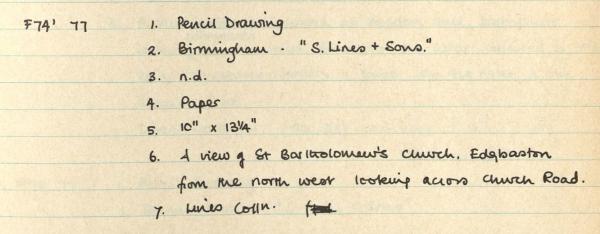 F74' 77 1. Pencil Drawing
2. Birmingham. "S. Lines + Sons."
3. n.d.
4. Paper
5. 10" x 13¼"
6. A view of St Bartholomew's Church, Edgbaston
from the north west looking across Church Road.
7. Lines Colln.